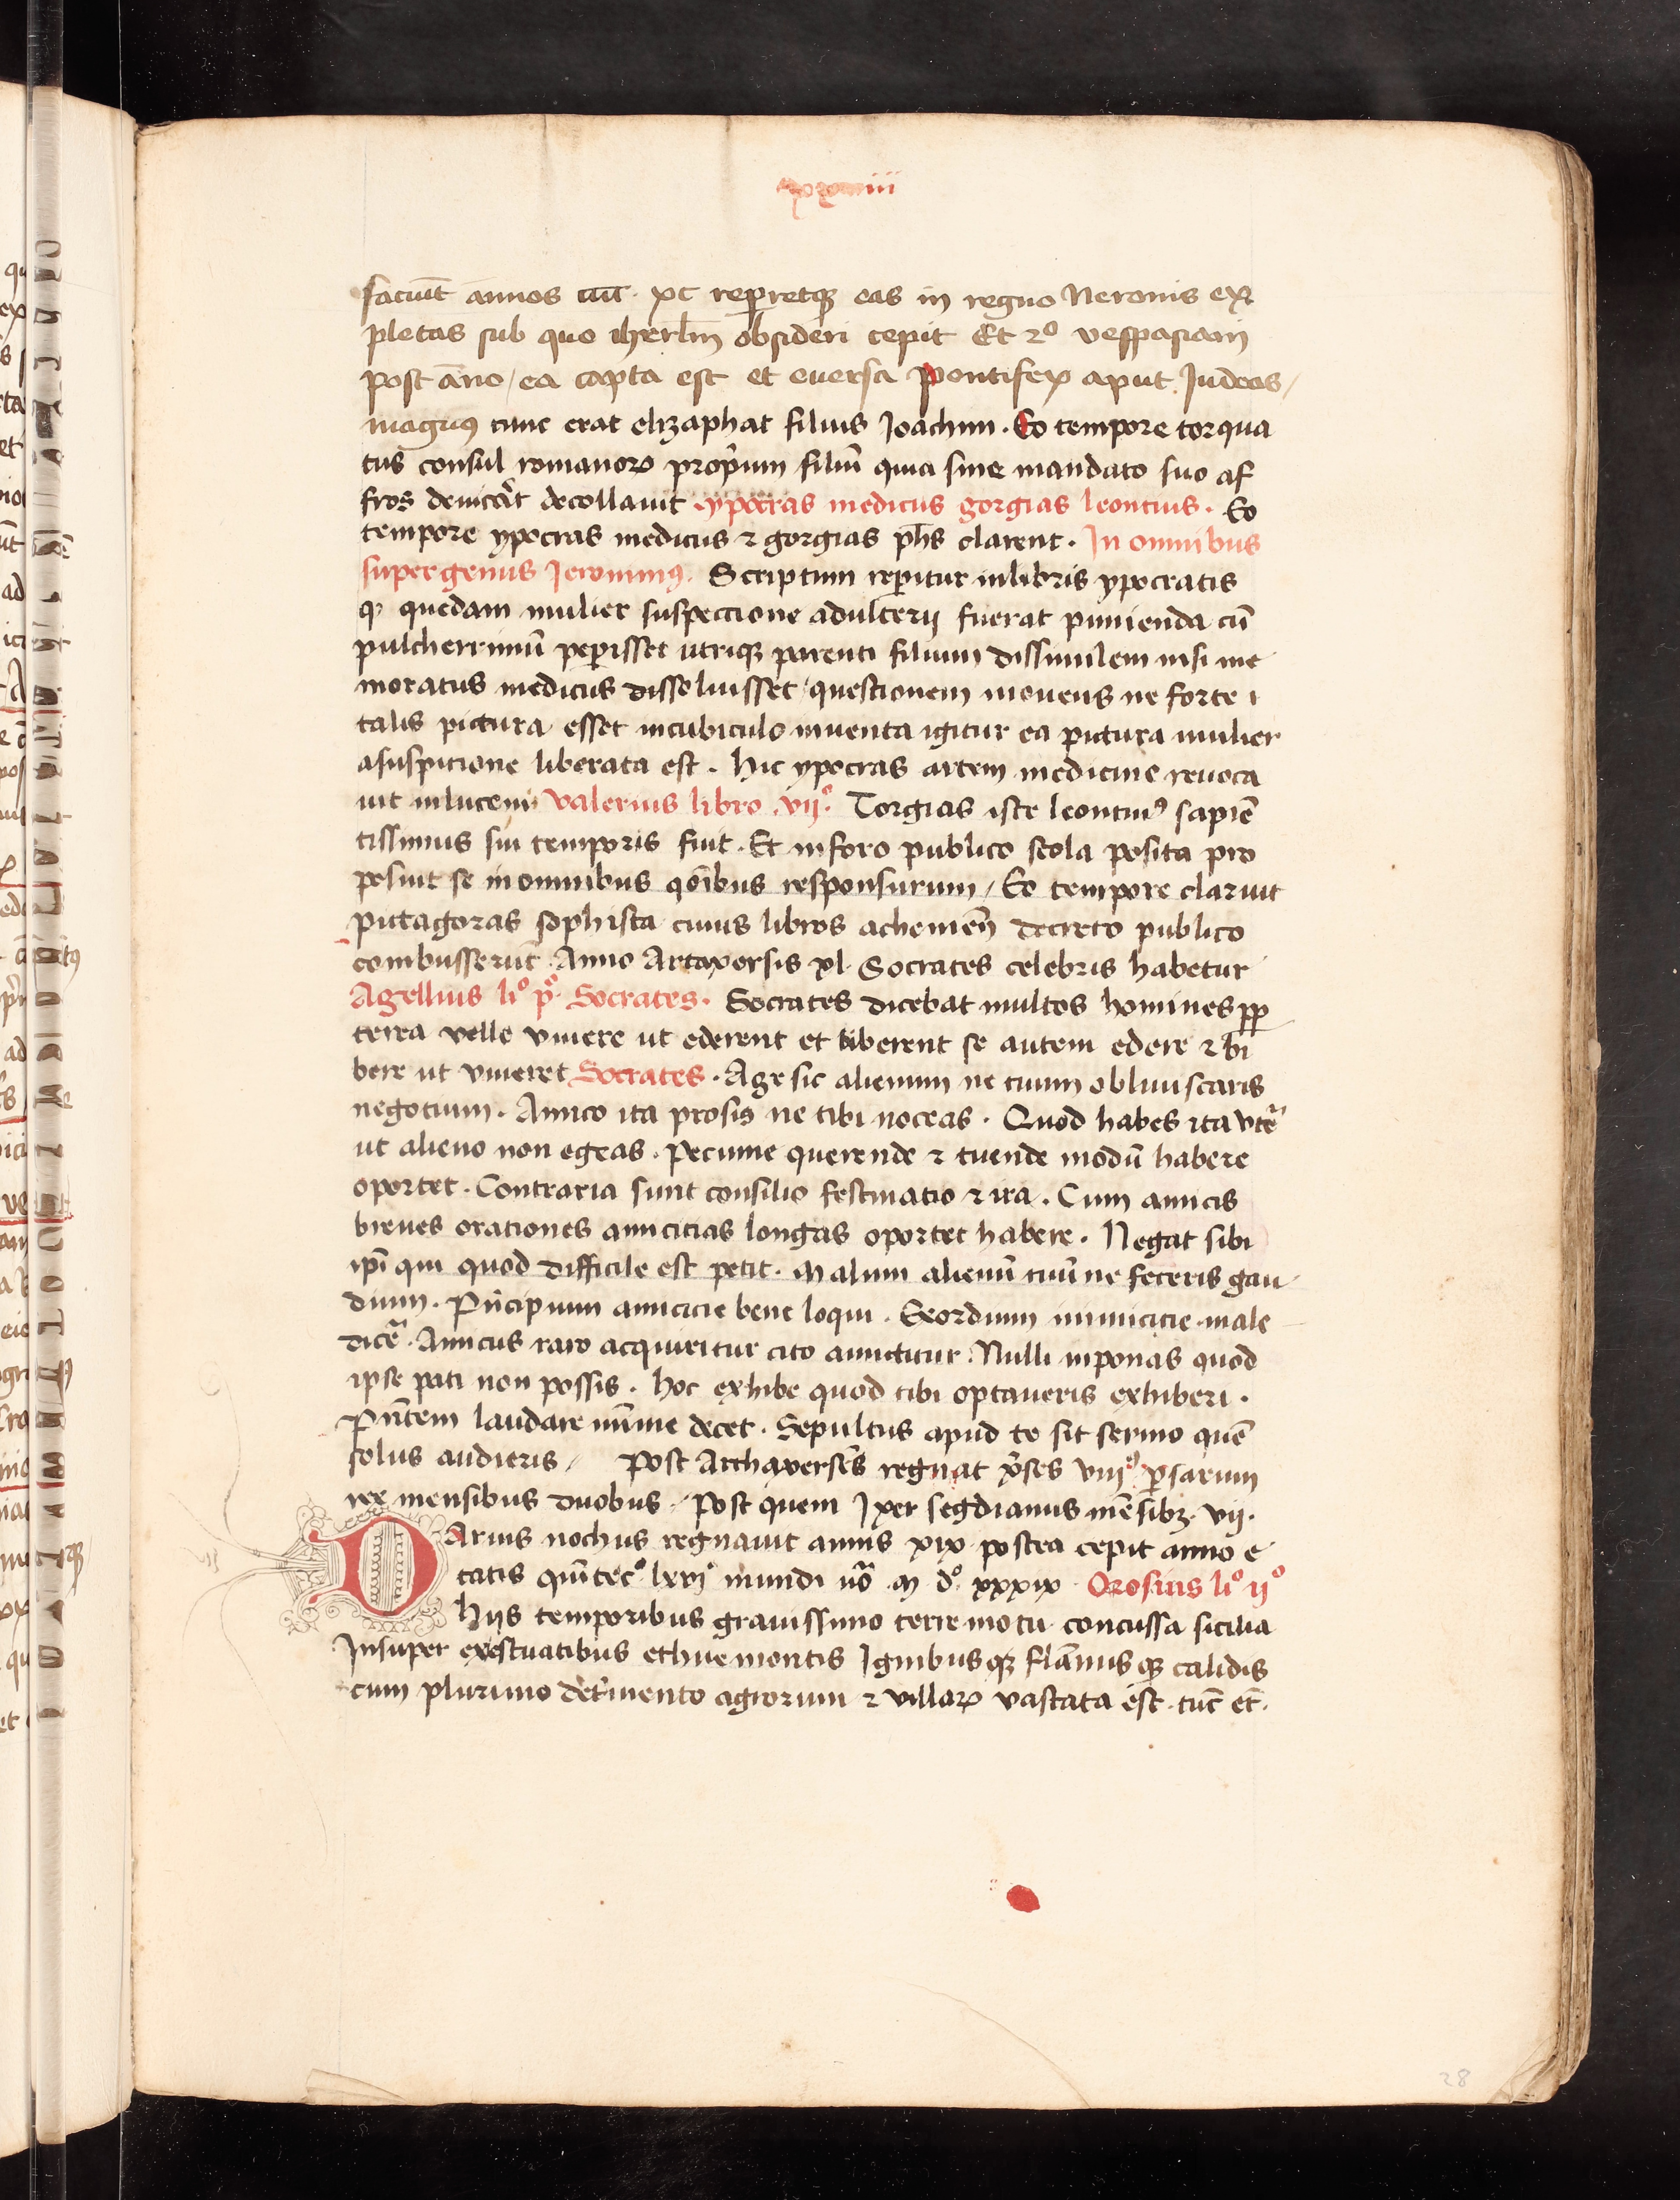 faciunt annos cccc xc reperietque eas in regno Neronis ex
pletas sub quo iherlm obsideri cepit Et 2º vespasiani
post anno / ea capta est et eversa Pontifex aput Judeos /
magnus tunc erat elizaphat filius Joachim . Eo tempore torqua
tus consul romanorum proprium filium quia sine mandato suo af
fros devicerat decollavit . ypocras medicus gorgias leontius . Eo
tempore ypocras medicus et gorgias phs clarent . In omnibus
super genus Jeronimus . Scriptum reperitur in libris ypocratis
quod quedam mulier suspectione adulterii fuerat punienda cum
pulcherrimum peperisset utrique parenti filium dissimilem nisi me
moratus medicus dissoluisset questionem movens ne forte
talis pictura esset in cubiculo inventa igitur ea pictura mulier
a suspitione liberata est . Hic ypocras artem medicine revoca
vit in lucem valerius libro vii° Gorgias iste leontinus sapien
tissimus sui temporis fuit . Et in foro publico scola posita pro
posuit se in omnibus qonibus responsurum / Eo tempore claruit
pitagoras sophista cuius libros achenien decreto publico
combusserunt Anno Artaxersis xl Socrates celebris habetur
Agellius li° p° Socrates . Socrates dicebat multos homines prop
terea velle vivere ut ederent et biberent se autem edere et bi
bere ut viveret Socrates . Age sic alienum ne tuum obliviscaris
negotium . Amico ita prosis ne tibi noceas . Quod habes ita utere
ut alieno non egeas . Pecunie querende et tuende modum habere
oportet . Contraria sunt consilio festinatio et ira . Cum amicis
breves orationes amicitias longas oportet habere . Negat sibi
ipi qui quod difficile est petit . Malum alienum tuum ne feceris gau
dium . Principium amicicie bene loqui . Exordium inimicicie male
dicere . Amicus raro acquiritur cito amittitur . Nulli inponas quod
ipse pati non possis . Hoc exhibe quod tibi optaveris exhiberi .
Pntem laudare minime decet . Sepultus apud te sit sermo quem
solus audieris / Post Arthaxerses regnat xerses viii° persarum
rex mensibus duobus / Post quem segdianus mensibus vii .
Darius nochus regnavit annis xix postea cepit anno e
tatis quinte mundi vero m d° xxxix Orosius li° ii°
Hiis temporibus gravissimo terre motu concussa sicilia
Insuper exestuatibus ethne montis Ignibusque flammisque calidis
cum plurimo detrimento agrorum et villarum vastata est . tunc et .
28